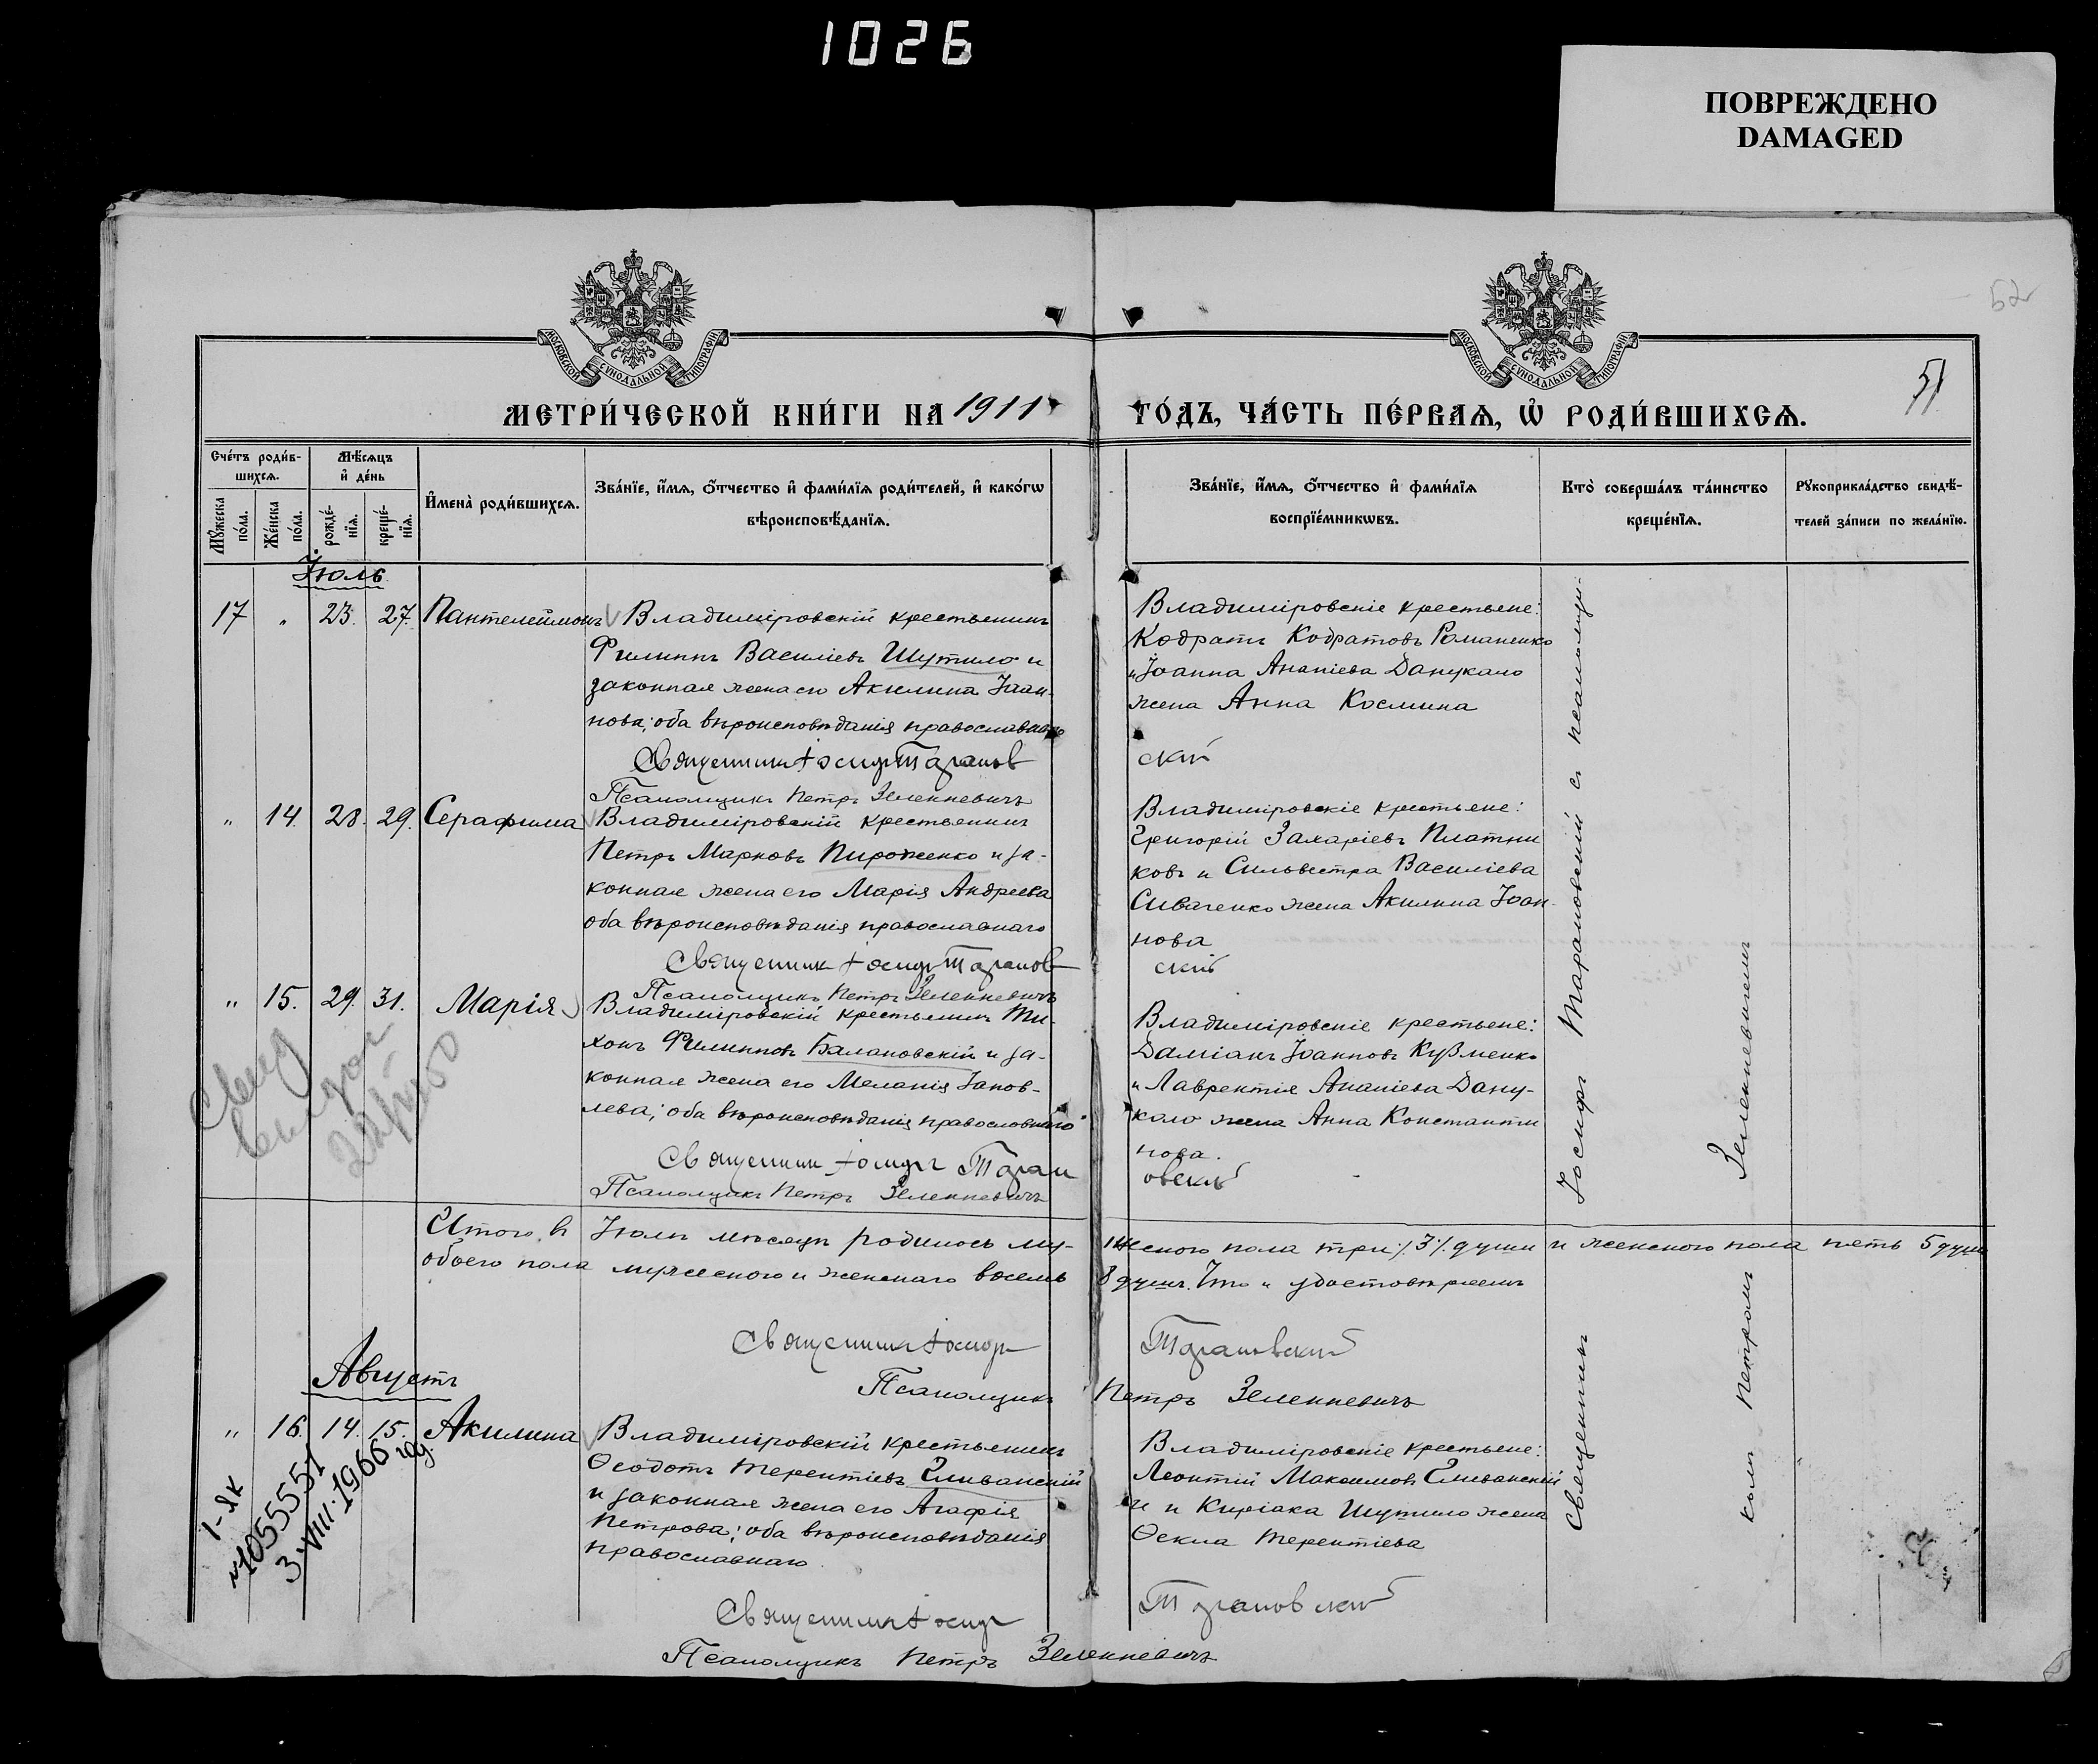 1026
ПОВРЕЖДЕНО
DAMAGED
52
51
МОСКОВСКОЙ СѴНОДАЛЬНОЙ ТИПОГРАФІИ
МОСКОВСКОЙ СѴНОДАЛЬНОЙ ТИПОГРАФІИ
МЕТРИ́ЧЕСКОЙ КНИ́ГИ НА 1911 ГО́ДЪ, ЧА́СТЬ ПЕ́РВАѦ, Ѡ҆ РОДИ́ВШИХСѦ.
Сче́тъ роди́в-
шихсѧ.
Мѣ́сѧцъ
и҆ де́нь
Мꙋ́жеска
по́ла.
Же́нска
по́ла.
рожде́-
нїѧ.
креще́-
нїѧ.
И҆мена̀ роди́вшихсѧ.
Зва́нїе, и҆́мѧ, ѻ҆́тчество и҆ фами́лїѧ роди́телей, и҆ како́гѡ
вѣроисповѣ́данїѧ.
Зва́нїе, и҆́мѧ, ѻ҆́тчество и҆ фами́лїѧ
воспрїе́мникѡвъ.
Кто̀ соверша́лъ та́инство
креще́нїѧ.
Рꙋкоприкла́дство свидѣ́-
телей за́писи по жела́нїю.
Іюль
17 " 23. 27. Пантелеймонъ Владиміровскій крестьянинъ
Филиппъ Василіевъ Шутило и
законная жена его Акилина Іоан-
нова; оба вѣроисповѣданія православнаго
Священникъ Іосифъ Тарановскій
Псаломщикъ Петръ Зеленкевичъ
Владиміровскіе крестьяне:
Кодратъ Кодратовъ Романенко
и Іоанна Ананіева Данукало
жена Анна Космина
" 14. 28. 29. Серафима Владиміровскій крестьянинъ
Петръ Марковъ Пироженко и за-
конная жена его Марія Андреева
оба вѣроисповѣданія православнаго
Священникъ Іосифъ Тарановскій
Псаломщикъ Петръ Зеленкевичъ
Владиміровскіе крестьяне:
Григорій Захаріевъ Платни
ковъ и Сильвестра Василіева
Сиваченко жена Акилина Іоан-
нова
" 15. 29. 31. Марія Владиміровскій крестьянинъ Ти-
хонъ Филипповъ Балановскій и за-
конная жена его Меланія Іаков-
лева; оба вѣроисповѣданія православнаго
Священникъ Іосифъ Тарановскій
Псаломщикъ Петръ Зеленкевичъ
Владиміровскіе крестьяне:
Даміанъ Іоанновъ Кузменко
и Лаврентія Ананіева Дану-
кало жена Анна Константи
нова.
Итого въ Іюлѣ мѣсяцѣ родилось му-жеского пола три ./.3./. души и женского пола пять 5 душъ
обоего пола мужеского и женскаго восемь 8 душъ. Что и удостовѣряемъ
Священникъ Іосифъ Тарановскій
Псаломщикъ Петръ Зеленкевичъ
Августъ
" 16. 14. 15. Акилина Владиміровскій крестьянинъ
Ѳеодотъ Терентіевъ Еливанскій
и законная жена его Агафія
Петрова; оба вѣроисповѣданія
православнаго.
Священникъ Іосифъ Тарановскій
Псаломщикъ Петръ Зеленкевичъ
Владиміровскіе крестьяне:
Леонтій Максимовъ Еливанскій
и Киріака Шутило жена
Ѳекла Терентіева
I-ЯК
№1055551
3.VIII.1966 год.
Священникъ Іосифъ Тарановскій съ псаломщи-
комъ Петромъ Зеленкевичемъ